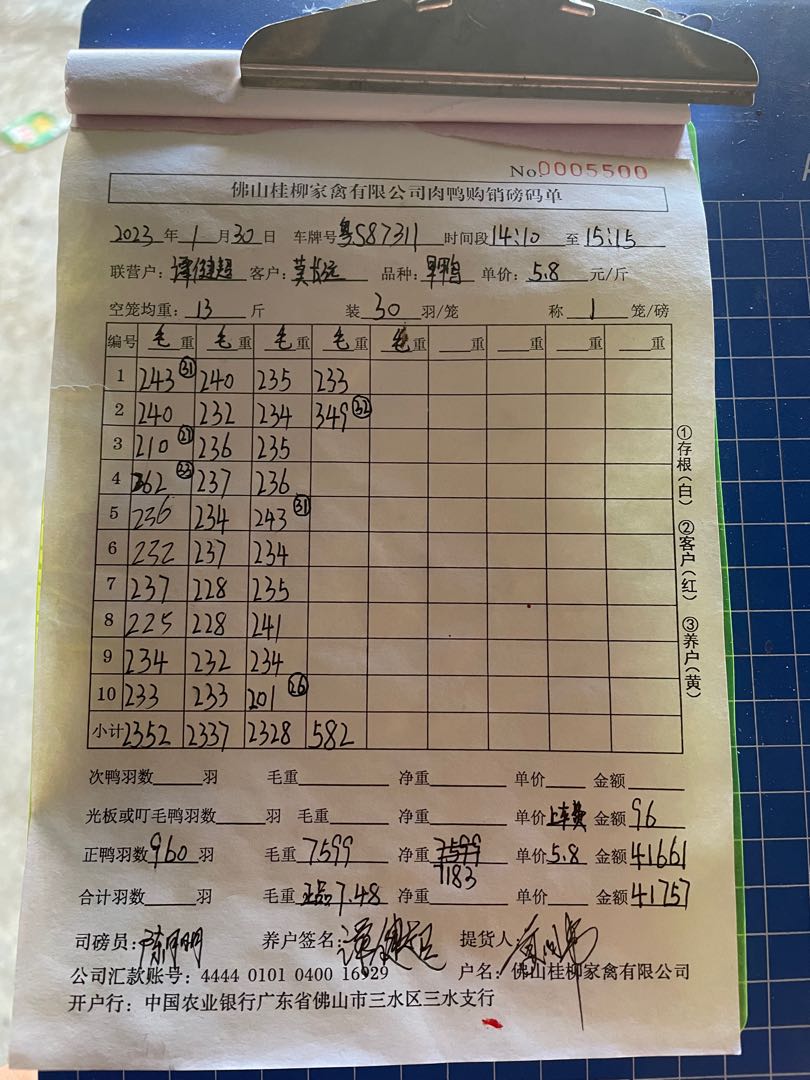 No.0005500
佛山桂柳家禽有限公司肉鸭购销磅码单
2023年1月30日 车牌号粤S87311 时间段14:10至15:15
联营户:谭健超 客户: 品种: 单价:5.8元/斤
空笼均重:13斤 装30羽/笼 称1笼/磅
编号 毛重 毛重 毛重 毛重 毛重 重 重 重 重
1 243 ㉛ 240 235 233
2 240 232 234 349 ㉜
3 210 236 235
4 262 237 236
5 236 234 243 ㉛
6 232 237 234
7 237 228 235
8 225 228 241
9 234 232 234
10 233 233 201 ㉖
小计 2352 2337 2328 582
①存根(白) ②客户(红) ③养户(黄)
次鸭羽数 羽 毛重 净重 单价 金额
光板或叮毛鸭羽数 羽 毛重 净重 单价上车费 金额96
正鸭羽数960羽 毛重7599 净重7599 单价5.8 金额41661
7183
合计羽数 毛重 7.48 净重 金额41757
司磅员: 养户签名:谭健超 提货人:
公司汇款账号:4444 0101 0400 16929 户名:佛山桂柳家禽有限公司
开户行:中国农业银行广东省佛山市三水区三水支行